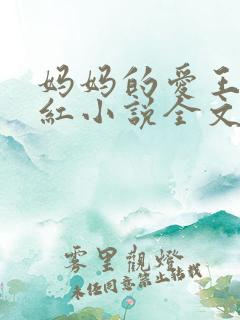 妈妈的爱王
红小说全文
雾里观灯
未经同意禁止转载